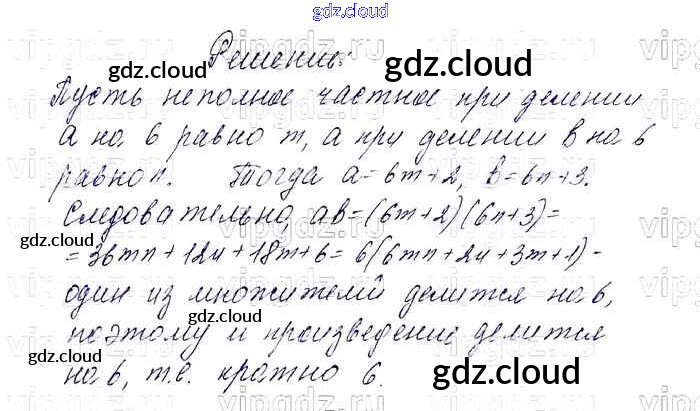 gdz.cloud
Решение:
Пусть неполное частное при делении
а на 6 равно m, а при делении в на 6
равно n. Тогда a=6m+2, b=6n+3.
Следовательно, ab=(6m+2)(6n+3)=
=36mn+12n+18m+6=6(6mn+2n+3m+1)-
один из множителей делится на 6,
поэтому и произведение делится
на 6, т.е. кратно 6.
gdz.cloud
gdz.cloud
gdz.cloud
gdz.cloud
gdz.cloud
gdz.cloud